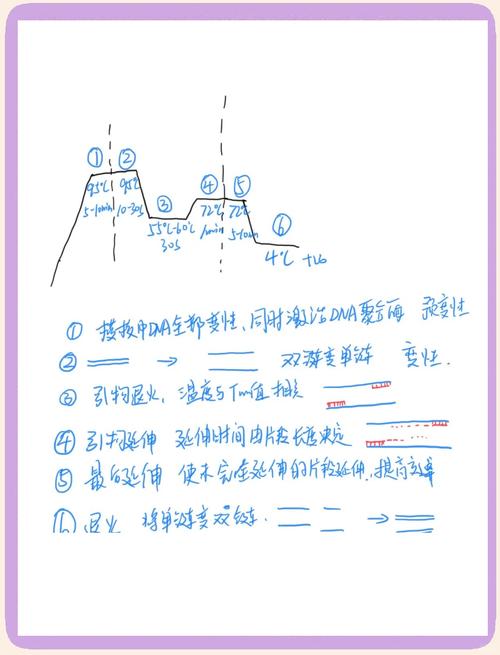 ① ② ④ ⑤
95℃ 95℃ ③ 72℃ 72℃ ⑥
5-10min 10-30s 1min 5-10min
55℃-60℃
30s
4℃ +∞
① 模板DNA全部变性、同时激活DNA聚合酶 预变性
② → 双链变单链 变性.
③ 引物退火, 温度与Tm值相关
④ 引物延伸 延伸时间由片段长度决定
⑤ 最后延伸 使未完全延伸的片段延伸,提高产率
⑥ 退火 将单链变双链. →